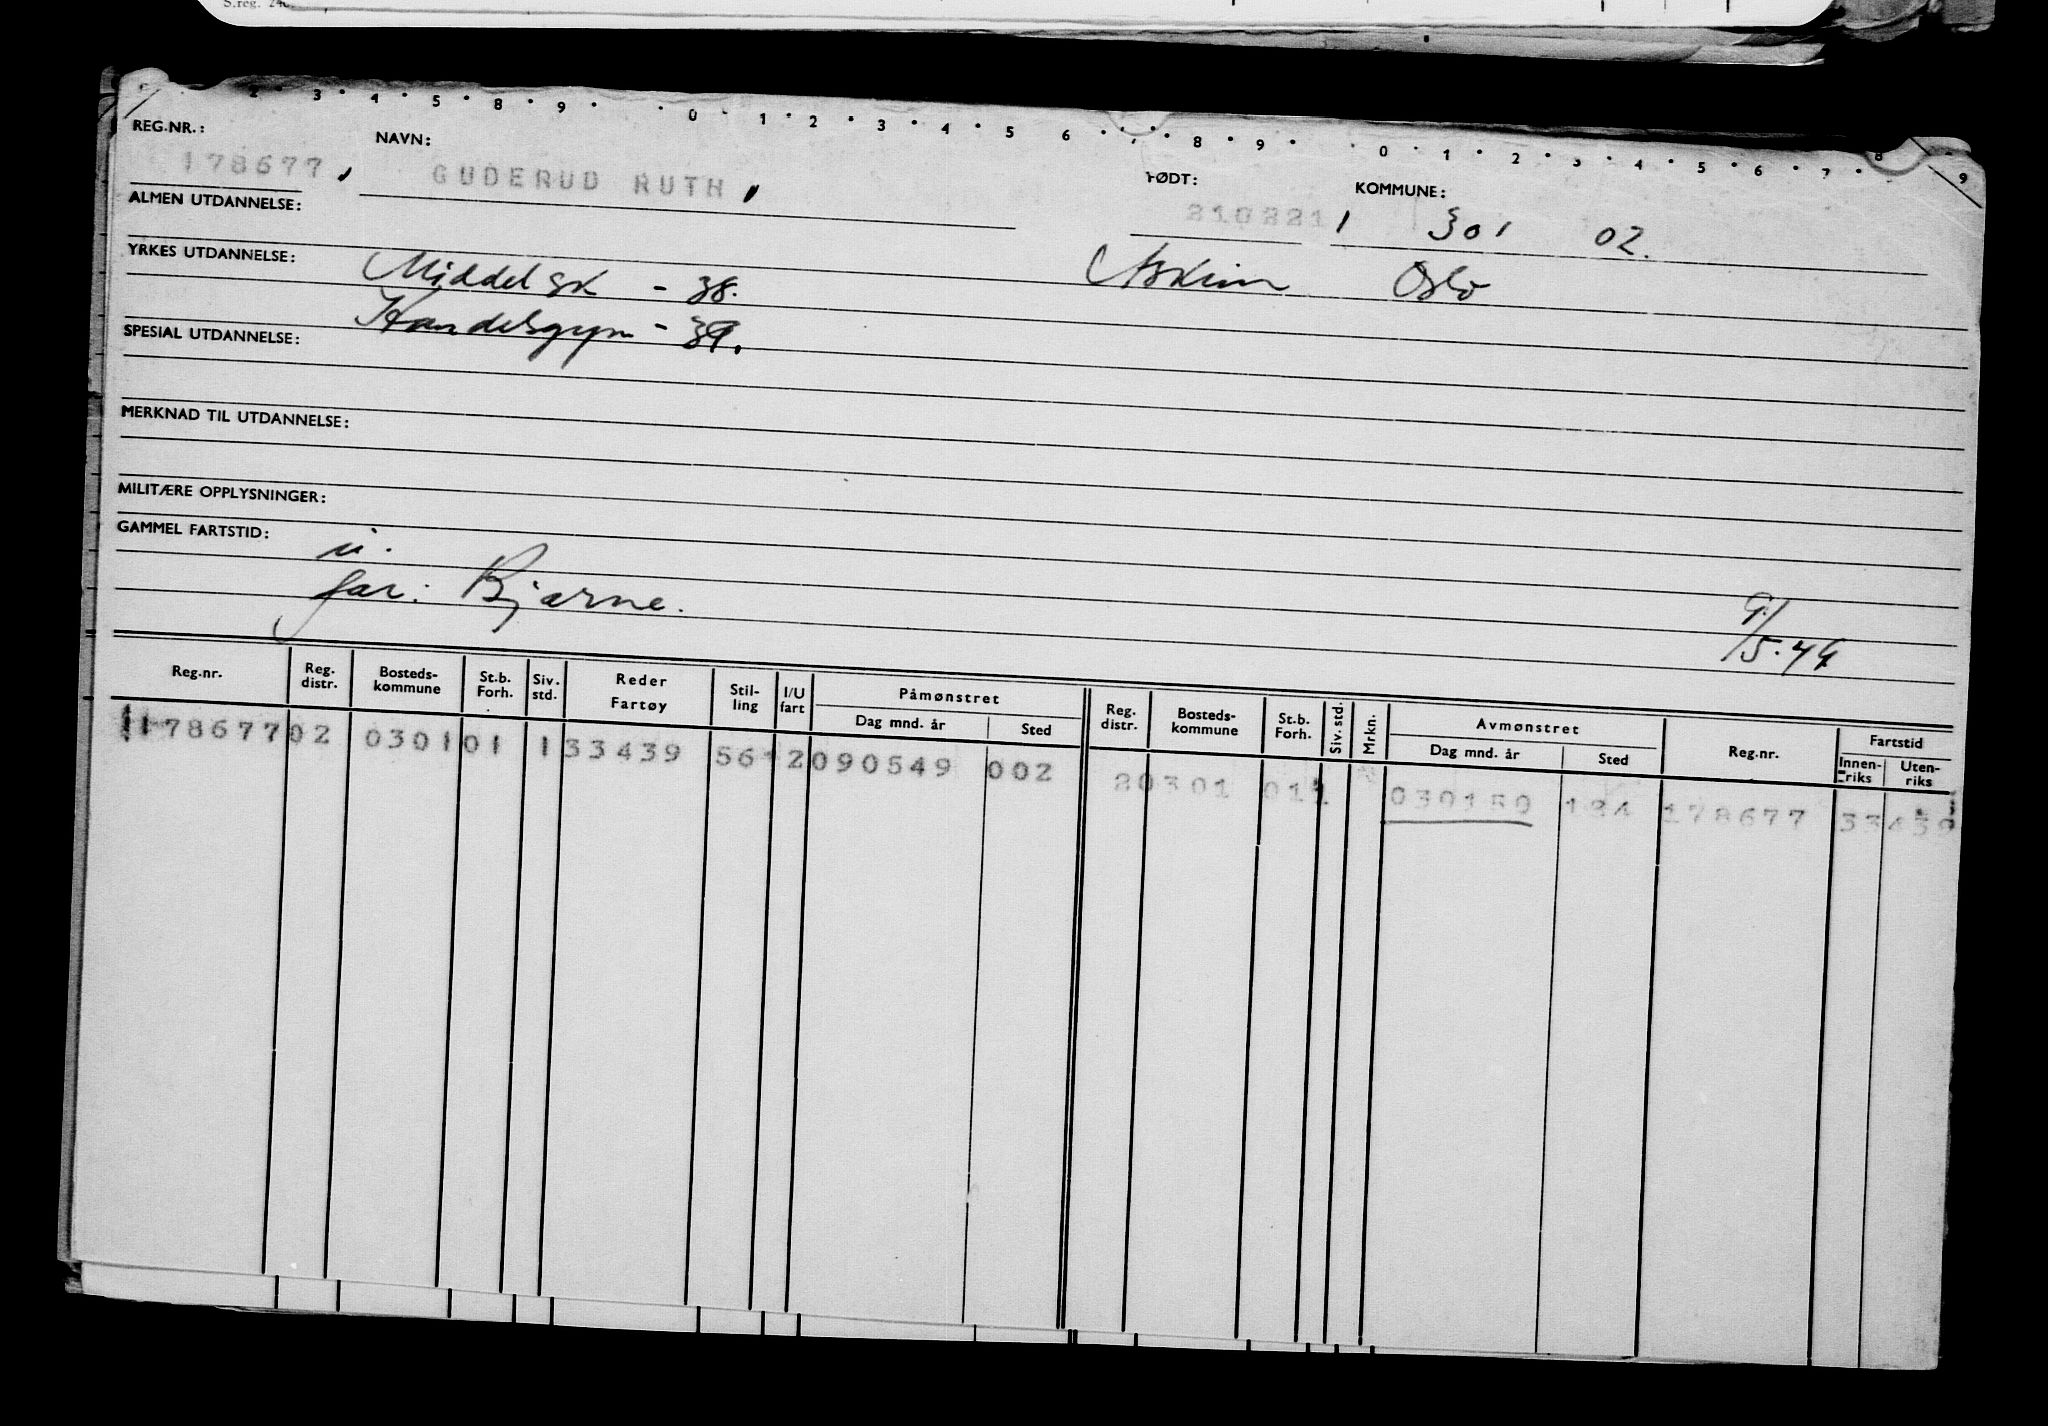 S.reg. 240
2 · 3 · 4 · 5 · 8 · 9 · · 0 · 1 · 2 · 3 · 4 · 5 6 · · · 8 · 9 · · 0 · 1 · 2 · 3 · 4 · 5 · 6 · 7 · 8 9
REG.NR.: NAVN: FØDT: KOMMUNE:
178677, GUDERUD RUTH, 1 301 02.
ALMEN UTDANNELSE:
YRKES UTDANNELSE: Middelsk - 38. Askim Oslo
Handelsgym - 39.
SPESIAL UTDANNELSE:
MERKNAD TIL UTDANNELSE:
MILITÆRE OPPLYSNINGER:
GAMMEL FARTSTID:
far: Bjarne. 9/5-49
Reg.nr. Reg. distr. Bosteds- kommune St.b. Forh. Siv. std. Reder Fartøy Stil- ling I/U fart Påmønstret Dag mnd. år Sted Reg. distr. Bosteds- kommune St.b. Forh. Siv. std. Mrkn. Avmønstret Dag mnd. år Sted Reg.nr. Fartstid Innen- riks Uten- riks
178677 02 0301 01 1 33439 561 2 090549 002 2 0301 01 1 030150 184 178677 33439